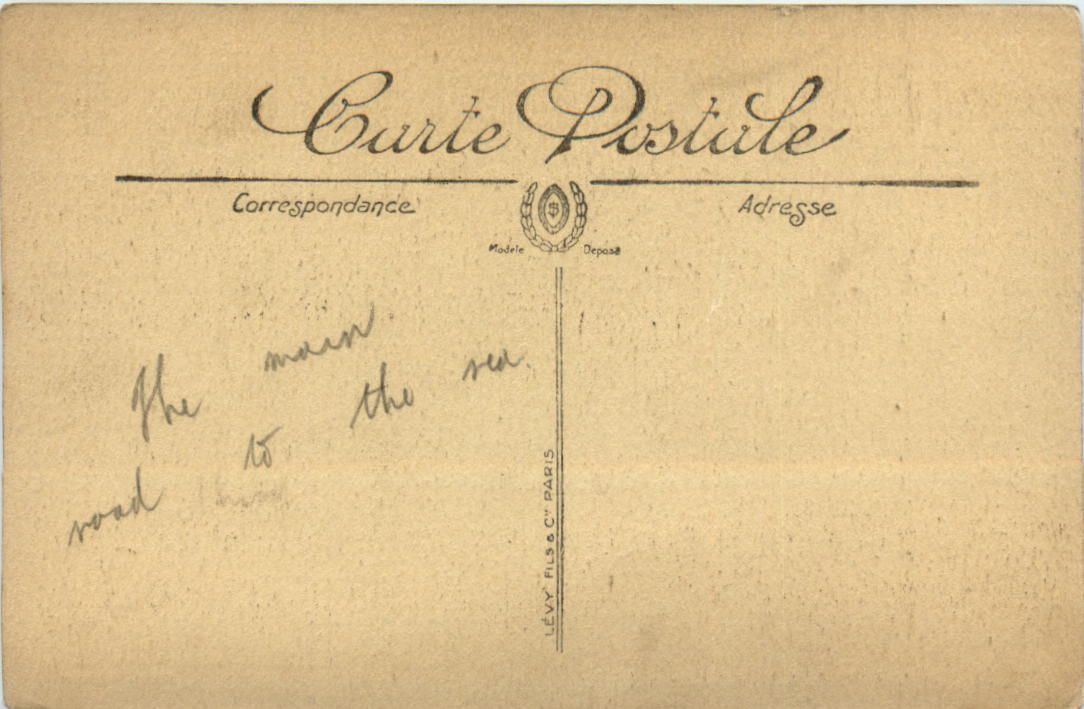 Carte Postale
Correspondance
Adresse
$
Modele Deposé
The main
road to the sea.
LÉVY FILS & Cie PARIS